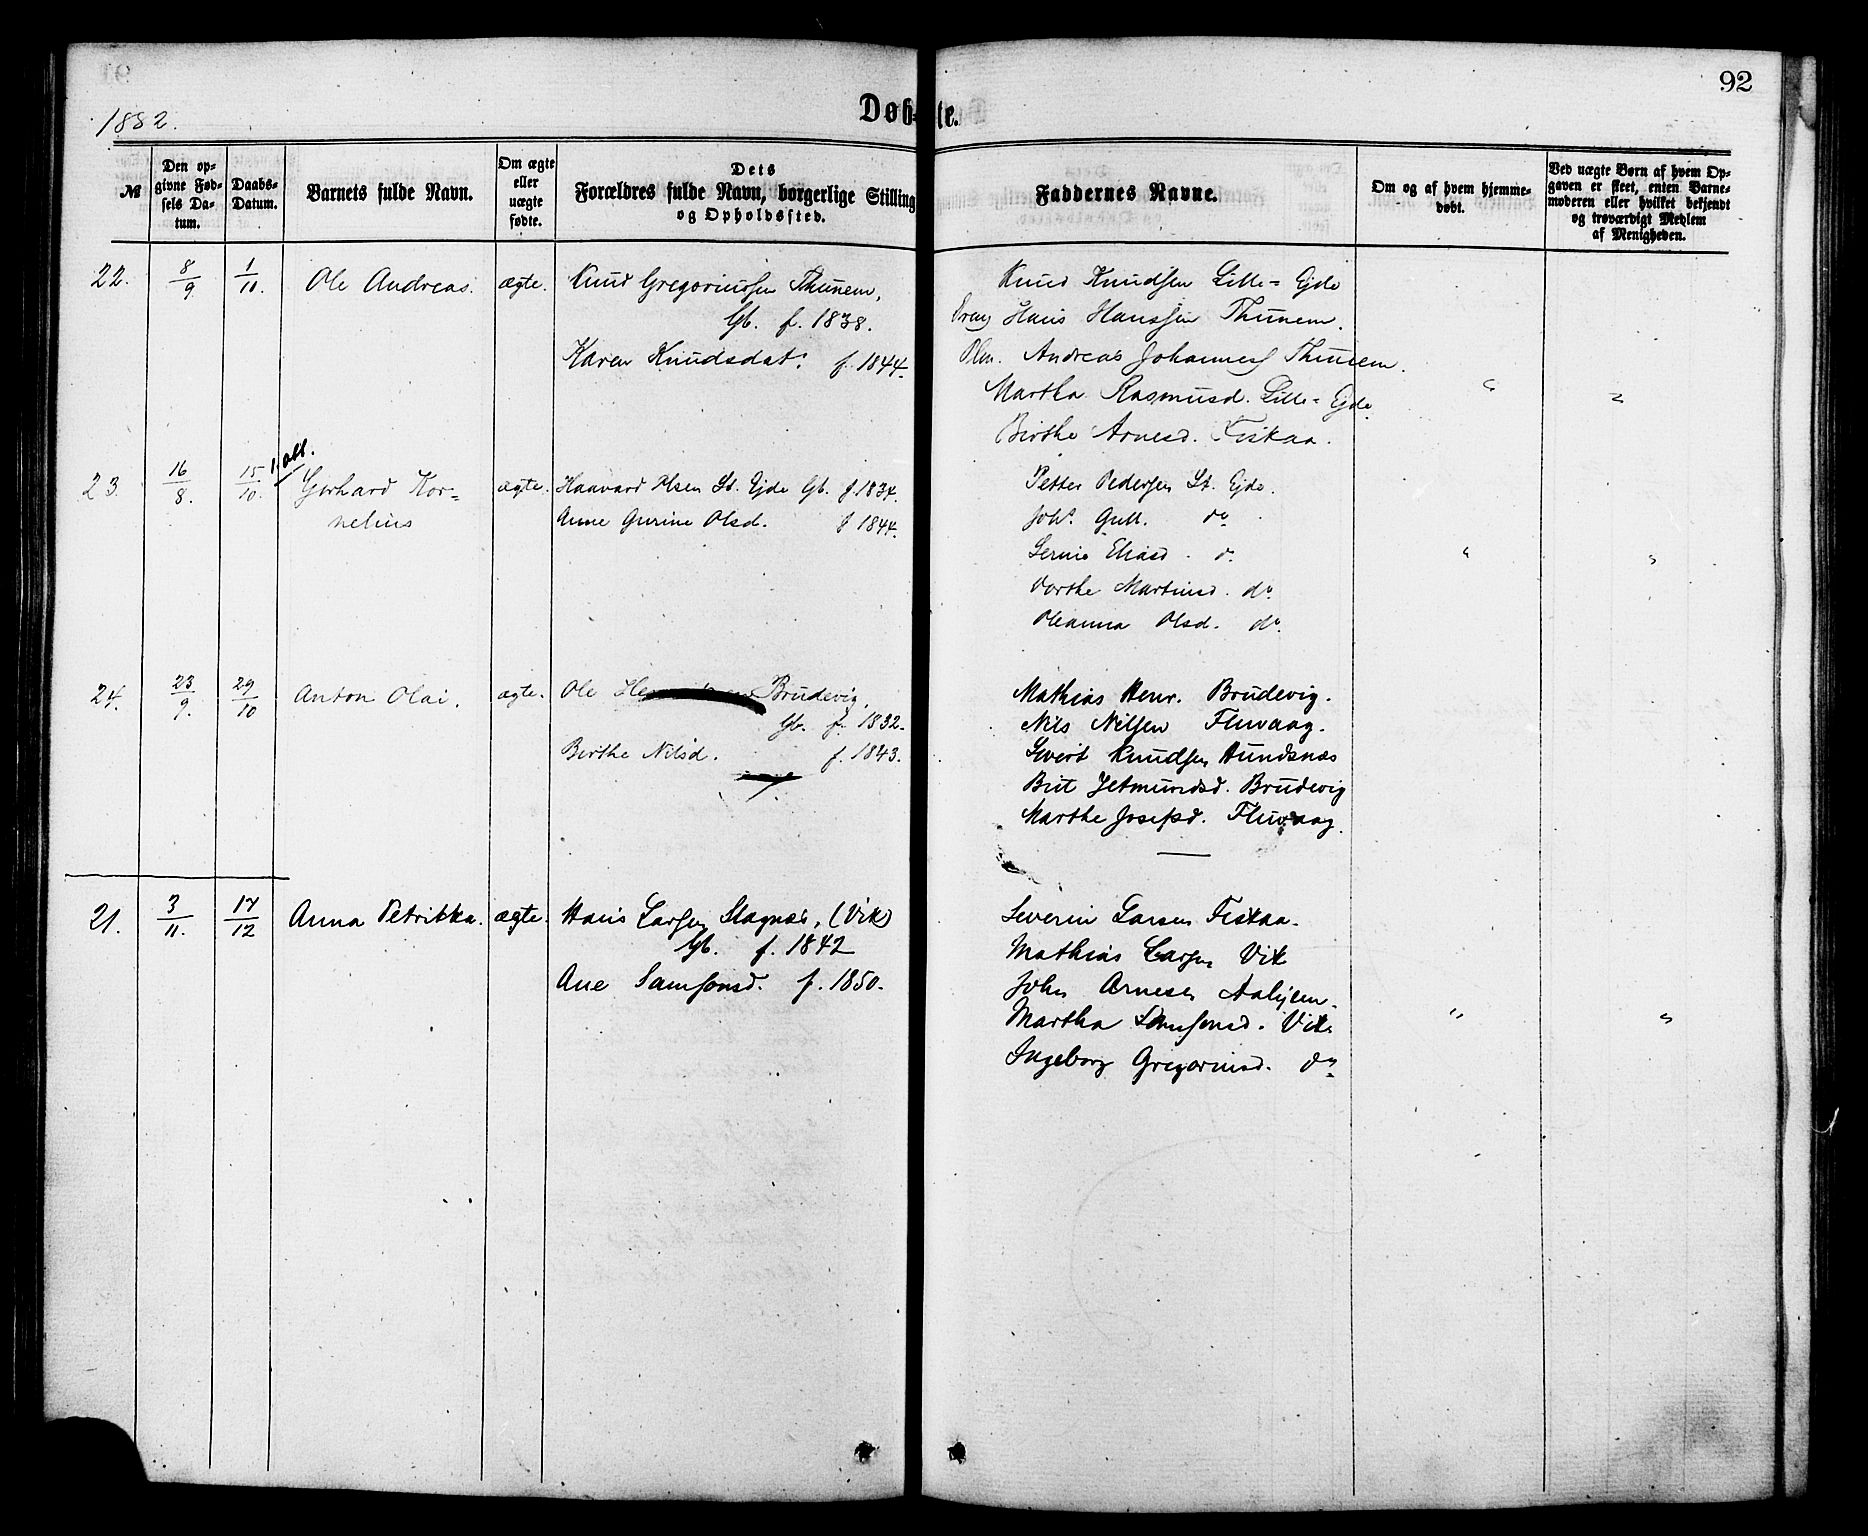 92
1882.
Døb-te.
№
Den opgivne Fødsels Datum.
Daabs-Datum.
Barnets fulde Navn.
Om ægte eller uægte fødte.
Dets Forældres fulde Navn, borgerlige Stilling og Opholdssted.
Faddernes Navne.
Om og af hvem hjemmedøbt.
Ved uægte Børn af hvem Opgaven er skeet, enten Barnemoderen eller hvilket bekjendt og troværdigt Medlem af Menigheden.
22. 8/9 1/11. Ole Andreas. ægte. Knud Gregoriussen Thunem,
Gb. f. 1838.
Karen Knudsdat: f. 1844.
Knud Knudsen Lille-Ejde
Hans Hanssen Thunem.
Andreas Johannes Thunem.
Martha Rasmusd. Lille-Ejde
Birthe Arnesd. Fiskaa.
23. 16/8. 15/10. Gerhard Kor-
nelius
ægte. Haavard Olsen St. Ejde Gb. f 1834.
Anne Gurine Olsd. f 1844.
Petter Pedersen St. Ejde.
Joh. Gull. do
Serine Eliasd. do
Dorthe Martinsd. do
Oleanna Olsd. do
24. 23/9. 29/10 Anton Olai. ægte. Ole Brudevig,
Gb. f. 1832.
Berthe Nilsd. f. 1843.
Mathias Henr. Brudevig.
Nils Nilsen Fluvaag.
Sivert Knudsen Hundsnæs
Brit Jetmundsd. Brudevig
Marthe Josefsd. Fluvaag.
21. 3/11. 17/12 Anna Petrikka. ægte. Hans Larsen Slagnæs, (Vik)
Gb. f. 1842
Ane Samsonsd. f. 1850.
Severin Larsen Fiskaa.
Mathias Larsen Vik
John Arnesen Aahjem.
Martha Samsonsd. Vik
Ingeborg Gregoriusd. do